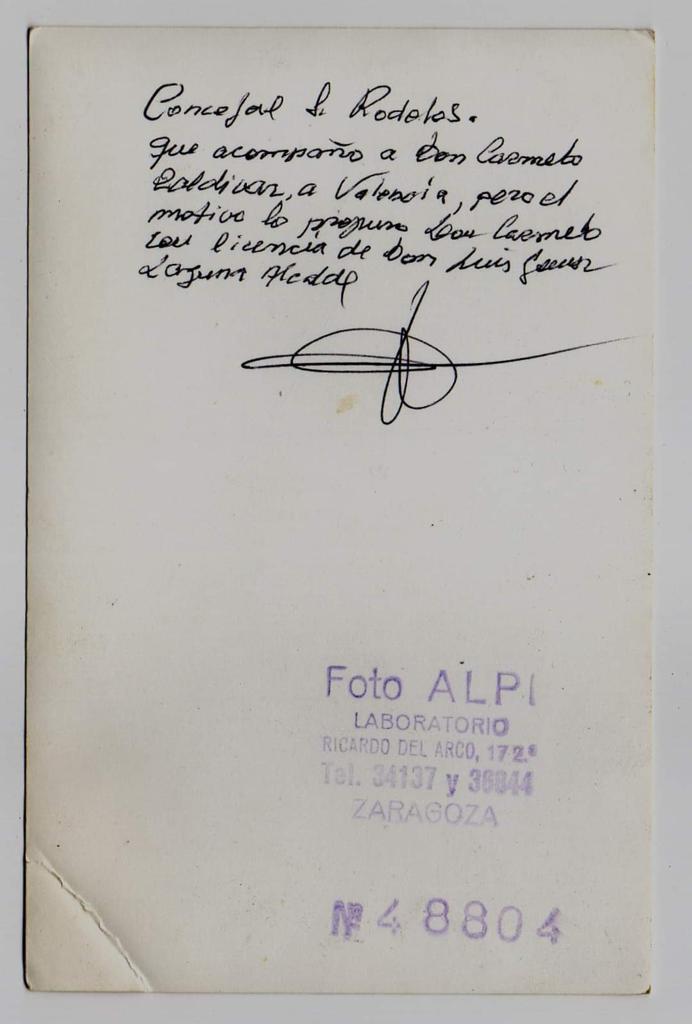 Concejal S. Rodelas.
que acompaño a Don Carmelo
Zaldivar, a Valencia, pero el
motivo lo propuso Don Carmelo
con licencia de Don Luis
Laguna Alcalde
Foto ALPI
LABORATORIO
RICARDO DEL ARCO, 17 2.º
Tel. 34137 y 36844
ZARAGOZA
Nº 48804